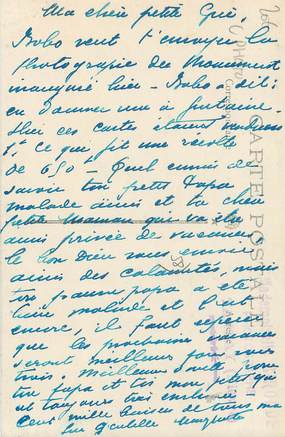 Ma chère petite Gui,
Bobo veut t'envoyer la
Photograpie du Monument
inauguré hier - Bobo a dit :
en donner une à
ces cartes étaient vendues
1f. Ce qui fit une recette
de 650f - Quel ennui de
savoir ton petit Papa
malade ainsi et ta chère
petite maman qui va être
ainsi privée de vacances
le bon Dieu vous envoie
ainsi des calamités, mais
ton pauvre papa a été
bien malade et l'est
encore, il faut espérer
que les prochaines vacances
seront meilleures pour vous
trois. Meilleure santé pour
ton papa et toi mon petit qui
est toujours très
Cent mille baisers de tous, ma
CARTE POSTALE
Correspondance
Adresse